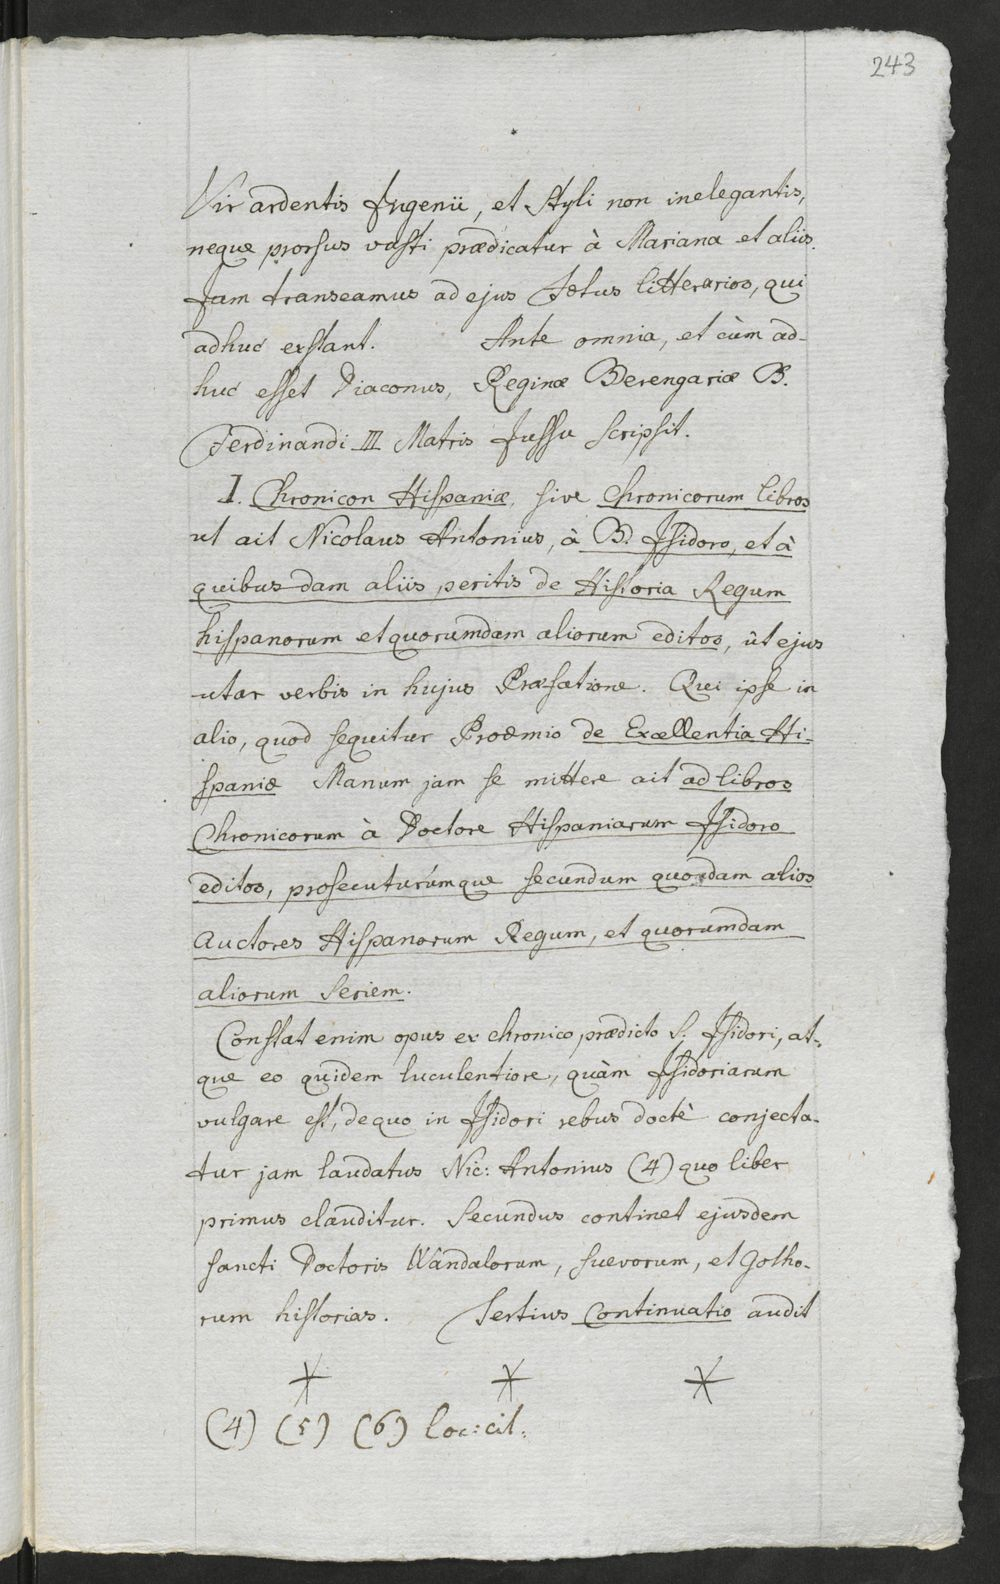 243
Vir ardentis Ingenii, et Styli non inelegantis,
neque prorsus vasti prædicatur à Mariana et aliis.
Jam transeamus ad ejus Fœtus litterarios, qui
adhuc exstant. Ante omnia, et cùm ad-
huc esset Diaconus, Reginæ Berengariæ B.
Ferdinandi III Matris Jussu scripsit.
I. Chronicon Hispaniæ, sive Chronicorum libros
ut ait Nicolaus Antonius, à B. Isidoro, et à
quibusdam aliis peritis de Historia Regum
hispanorum et quorumdam aliorum editos, ut ejus
utar verbis in hujus Præfatione. Qui ipse in
alio, quod sequitur Proœmio de Excellentia Hi-
spaniæ Manum jam se mittere ait ad libros
Chronicorum à Doctore Hispaniarum Isidoro
editos, prosecuturumque secundum quosdam alios
Auctores Hispanorum Regum, et quorumdam
aliorum Seriem.
Constat enim opus ex chronico prædicto S. Isidori, at-
que eo quidem luculentiore, quàm Isidorianum
vulgare est, de quo in Isidori rebus doctè conjecta-
tur jam laudatus Nic: Antonius (4) quo liber
primus clauditur. Secundus continet ejusdem
sancti Doctoris Wandalorum, suevorum, et Gotho-
rum historias. Tertius Continuatio audit
* * *
(4) (5) (6) loc: cit: